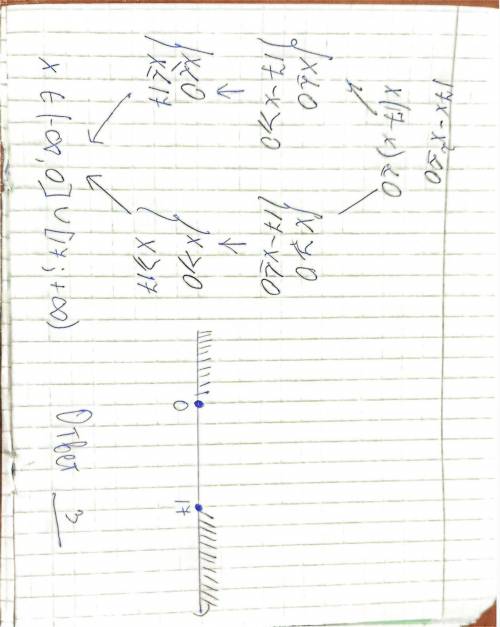 17x - x² ≤ 0
x(17-x) ≤ 0
{x ≤ 0
17-x ≥ 0
{x ≥ 0
17-x ≤ 0
{x ≤ 0
x ≤ 17
{x ≥ 0
x ≥ 17
x ∈ (-∞; 0] ∪ [17; +∞)
0 17
Ответ 3